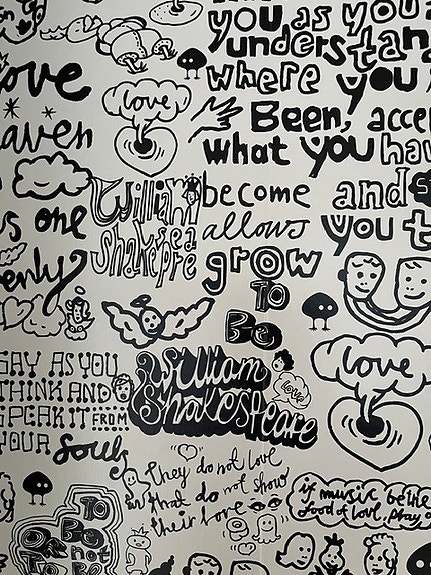 you as you
understan
where you
Been, acce
what you hav
become and
allows you t
grow
love
ove
aven
s one
enly
William
Shakespere
TO
Be
William
Shakespeare
love
love
SAY AS YOU
THINK AND
SPEAK IT FROM
YOUR Souls
they do not love
that do not show
their love
if music be the
food of love, play o
TO
Be
OR not
TO Be